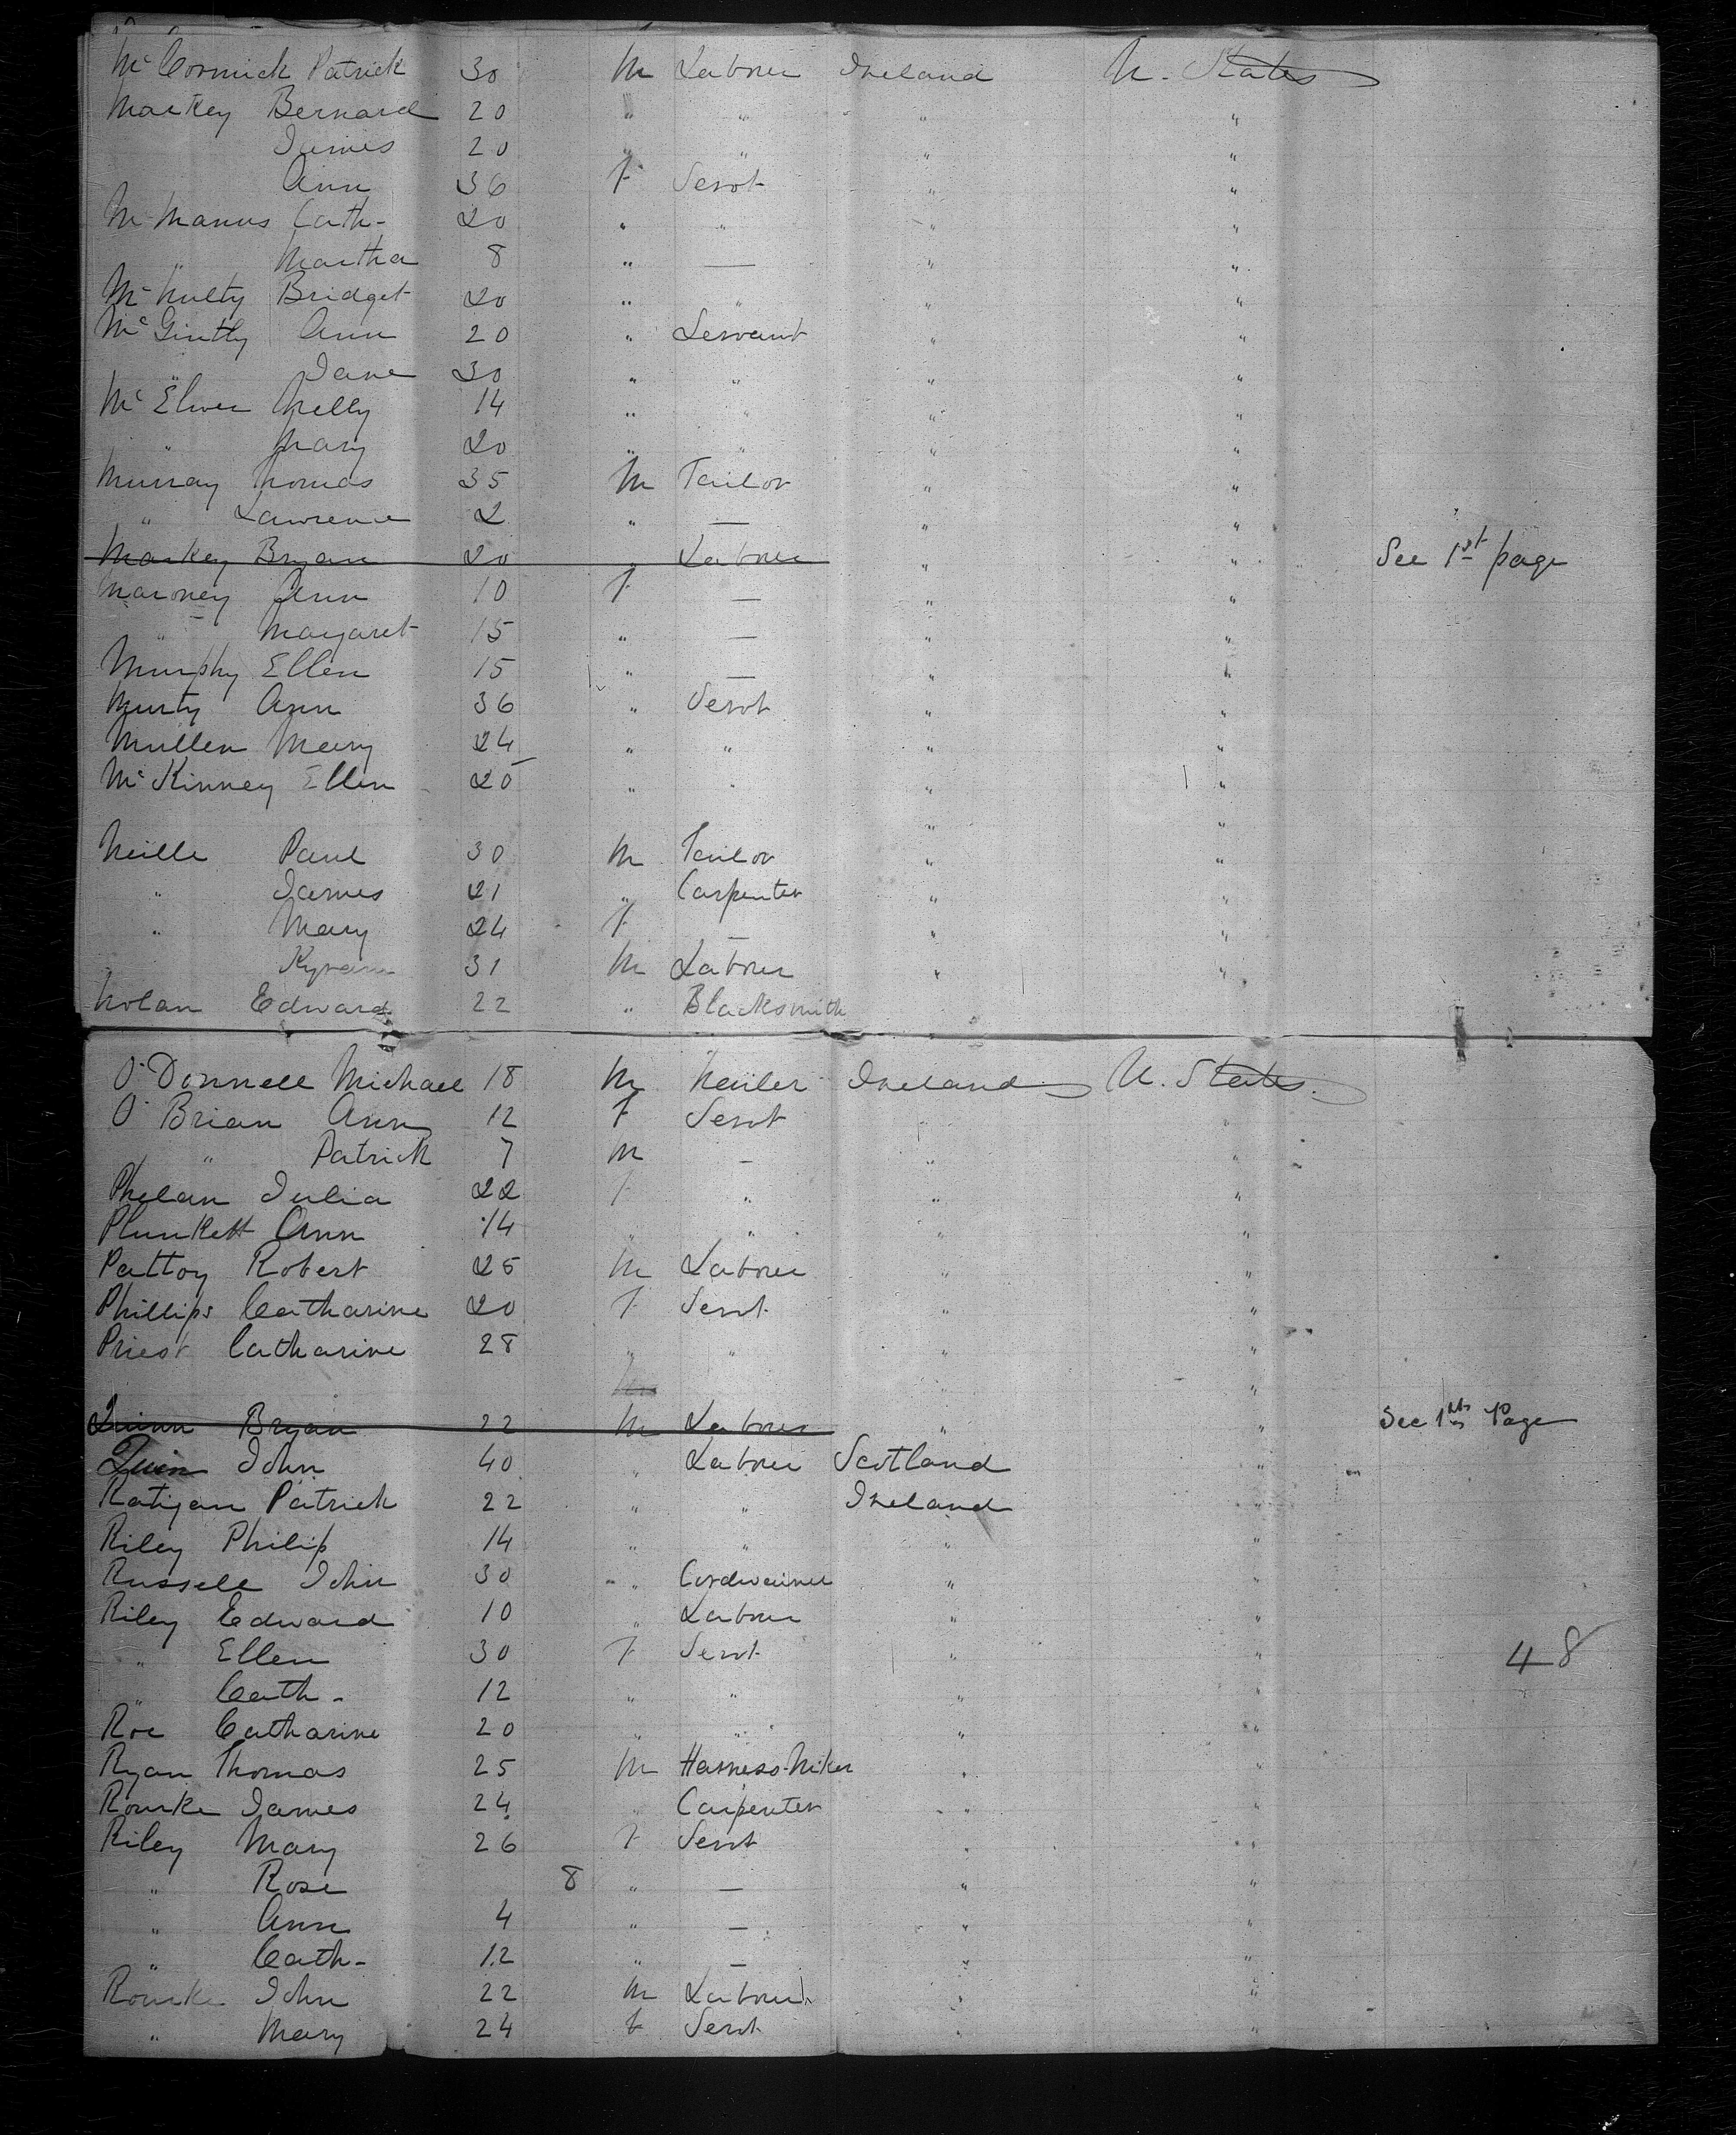 McCormick Patrick 30 M Labrer Ireland U. States
Markey Bernard 20 " " " "
James 20 " " " "
Ann 36 F Servt " "
McManus Cath- 20 " " " "
" Martha 8 " — " "
McNulty Bridget 20 " " " "
McGintty Ann 20 " Servant " "
" Jane 30 " " " "
McElwee Nelly 14 " " " "
" Mary 20 " " " "
Murray Thomas 35 M Tailor " "
" Lawrence 2 " — " "
Markey Bryan 20 " Labrer " " See 1st page
Maroney Ann 10 F — " "
" Margaret 15 " — " "
Murphy Ellen 15 " — " "
Murty Ann 36 " Servt " "
Mullen Mary 24 " " " "
McKinney Ellen 20 " " " "
" "
Neille Paul 30 M Tailor " "
" James 21 " Carpenter " "
" Mary 24 F — " "
" Kyran 31 M Labrer " "
Nolan Edward 22 " Blacksmith
O'Donnell Michael 18 M Nailer Ireland U. States.
O'Brian Ann 12 F Servt " "
" Patrick 7 M — " "
Phelan Julia 22 F " " "
Plunkett Ann 14 " " " "
Pattoy Robert 25 M Labrer " "
Phillips Catharine 20 F Servt " "
Priest Catharine 28 " " " "
" "
Quinn Bryan 22 M Labrer " " See 1st Page
Quin John 40 " Labrer Scotland "
Ratigan Patrick 22 " " Ireland "
Riley Philip 14 " " " "
Russell John 30 " Cordwainer " "
Riley Edward 10 " Labrer " "
" Ellen 30 F Servt " " 48
" Cath- 12 " " " "
Roe Catharine 20 " " " "
Ryan Thomas 25 M Harness-Miker " "
Rourke James 24 " Carpenter " "
Riley Mary 26 F Servt " "
" Rose 8 " — " "
" Ann 4 " — " "
" Cath- 12 " — " "
Rourke John 22 M Labrer " "
" Mary 24 F Servt " "